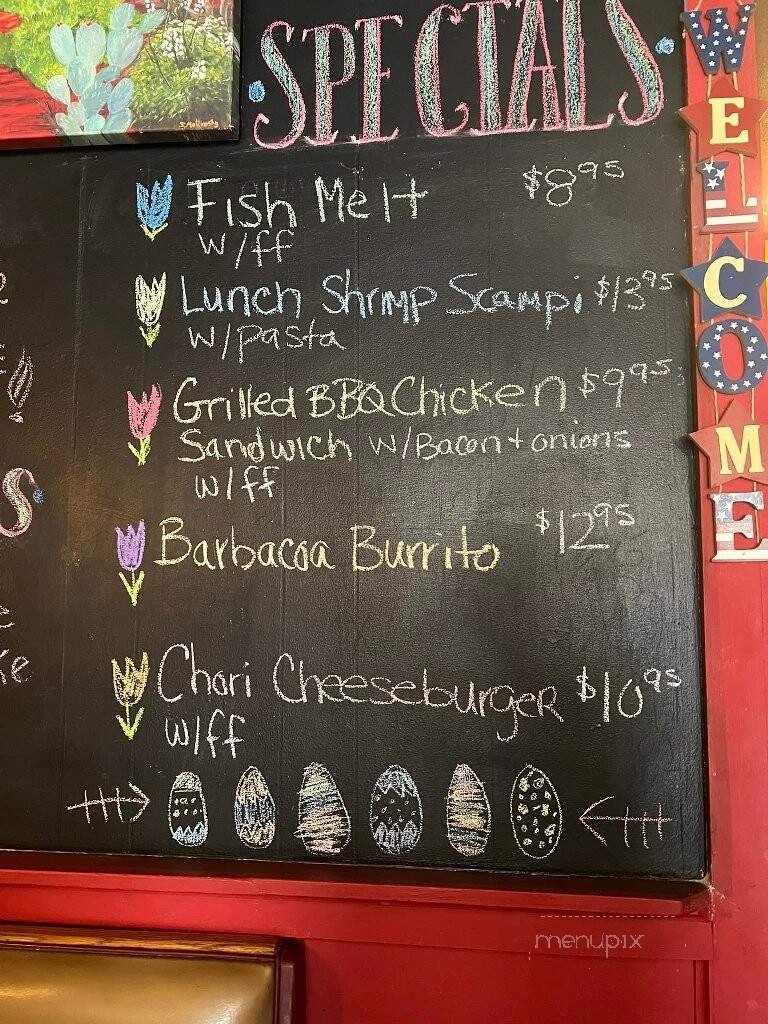 SPECIALS
Fish Melt $8.95
w/ff
Lunch Shrimp Scampi $13.95
w/pasta
Grilled BBQ Chicken $9.95
Sandwich w/Bacon + onions
w/ff
Barbacoa Burrito $12.95
Chori Cheeseburger $10.95
w/ff
WELCOME
menupix